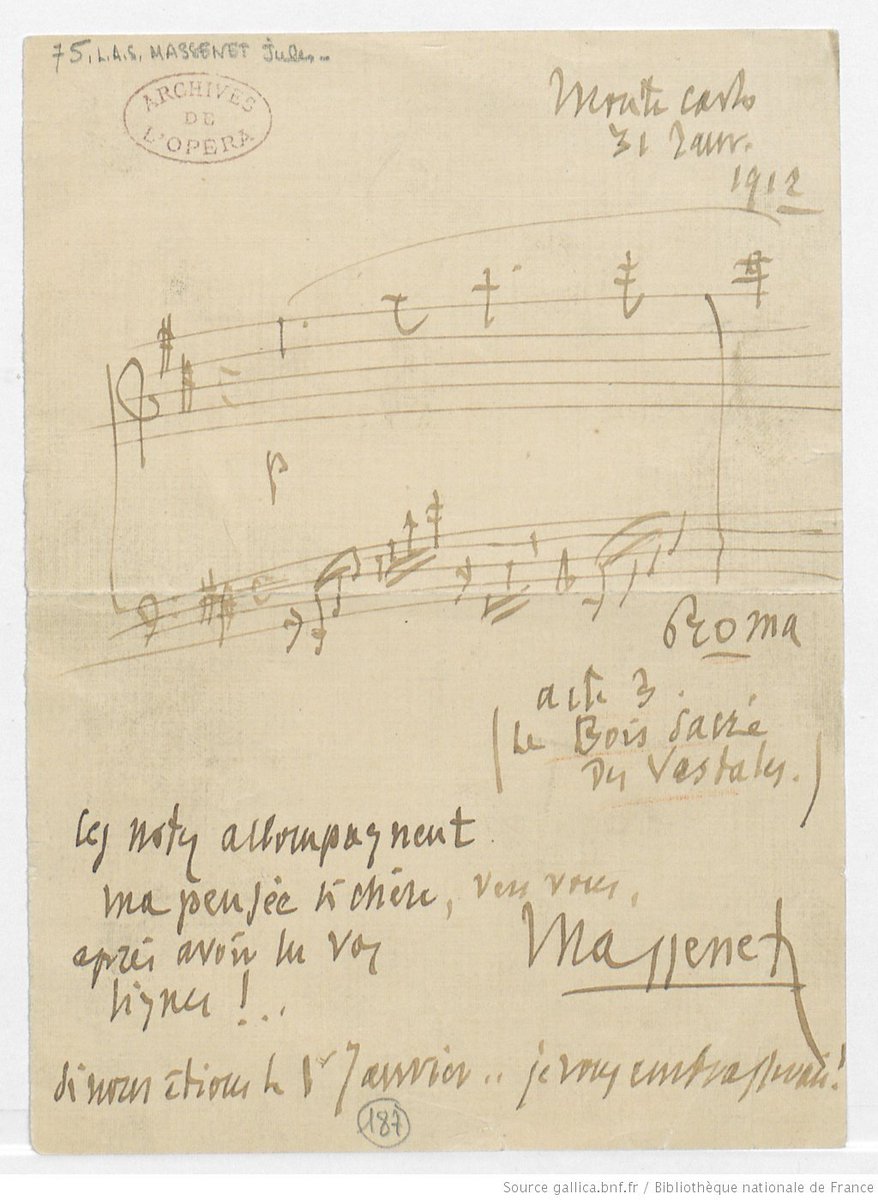 75. L.A.S. MASSENET Jules
ARCHIVES
DE
L'OPÉRA
Monte Carlo
31 Janv.
1912
p
Roma
acte 3.
(Le Bois Sacré
des Vestales.)
Ces notes accompagnent
ma pensée si chère, vers vous,
après avoir lu vos
lignes !...
Massenet
Si nous étions le 1er Janvier .. je vous embrasserais !
187
Source gallica.bnf.fr / Bibliothèque nationale de France